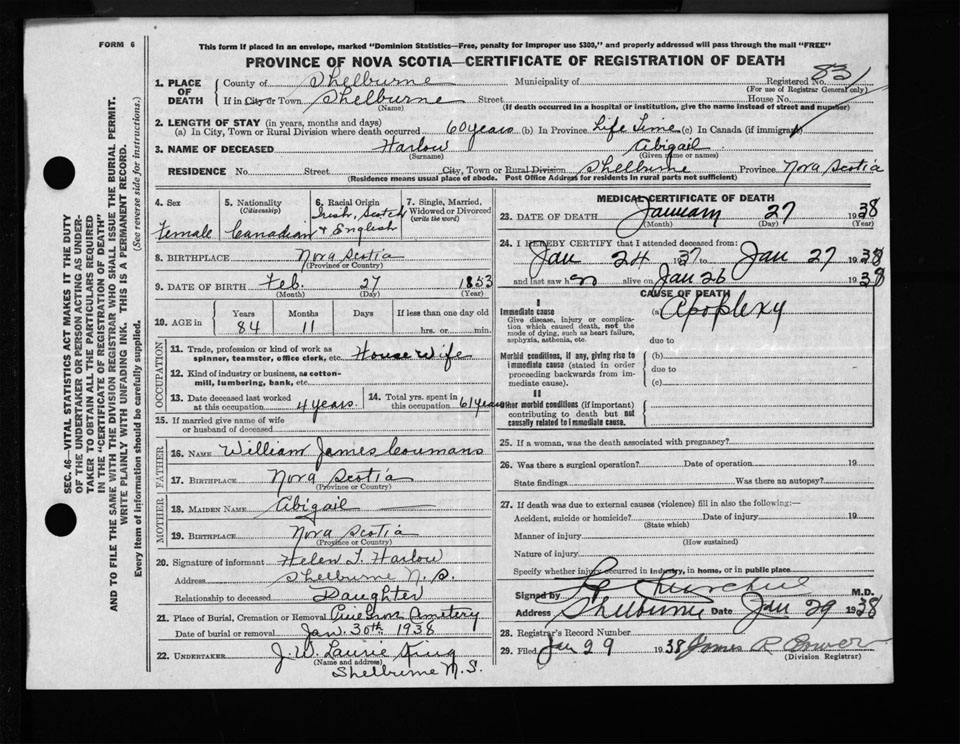 FORM 6
This form if placed in an envelope, marked "Dominion Statistics—Free, penalty for improper use $300," and properly addressed will pass through the mail "FREE"
PROVINCE OF NOVA SCOTIA—CERTIFICATE OF REGISTRATION OF DEATH
SEC. 46—VITAL STATISTICS ACT MAKES IT THE DUTY
OF THE UNDERTAKER OR PERSON ACTING AS UNDER-
TAKER TO OBTAIN ALL THE PARTICULARS REQUIRED
IN THE "CERTIFICATE OF REGISTRATION OF DEATH"
AND TO FILE THE SAME WITH THE DIVISION REGISTRAR WHO SHALL ISSUE THE BURIAL PERMIT.
WRITE PLAINLY WITH UNFADING INK. THIS IS A PERMANENT RECORD.
Every item of information should be carefully supplied. (See reverse side for instructions.)
1. PLACE OF DEATH County of Shelburne Municipality of Registered No. 83
(For use of Registrar General only)
If in City or Town Shelburne Street House No.
(Name) (If death occurred in a hospital or institution, give the name instead of street and number)
2. LENGTH OF STAY (in years, months and days)
(a) In City, Town or Rural Division where death occurred 60 years (b) In Province Life Time (c) In Canada (if immigrant)
3. NAME OF DECEASED Harlow Abigail
(Surname) (Given name or names)
RESIDENCE No. Street City, Town or Rural Division Shelburne Province Nova Scotia
(Residence means usual place of abode. Post Office Address for residents in rural parts not sufficient)
4. Sex Female
5. Nationality (Citizenship) Canadian
6. Racial Origin Irish, Scotch & English
7. Single, Married, Widowed or Divorced (write the word)
8. BIRTHPLACE Nova Scotia
(Province or Country)
9. DATE OF BIRTH Feb. 27 1853
(Month) (Day) (Year)
10. AGE in Years Months Days If less than one day old
84 11 hrs. or min.
OCCUPATION
11. Trade, profession or kind of work as spinner, teamster, office clerk, etc. House Wife
12. Kind of industry or business, as cotton-mill, lumbering, bank, etc.
13. Date deceased last worked at this occupation 4 years.
14. Total yrs. spent in this occupation 61 years
15. If married give name of wife or husband of deceased
FATHER
16. NAME William James
17. BIRTHPLACE Nova Scotia
(Province or Country)
MOTHER
18. MAIDEN NAME Abigail
19. BIRTHPLACE Nova Scotia
(Province or Country)
20. Signature of informant Helen T. Harlow
Address Shelburne N.S.
Relationship to deceased Daughter
21. Place of Burial, Cremation or Removal Pine Grove Cemetery
Date of burial or removal Jan. 30th. 1938
22. UNDERTAKER J. W. Laurie King
(Name and address)
Shelburne N.S.
MEDICAL CERTIFICATE OF DEATH
23. DATE OF DEATH January 27 1938
(Month) (Day) (Year)
24. I HEREBY CERTIFY that I attended deceased from:
Jan 24 1937 to Jan 27 1938
and last saw h alive on Jan 26 1938
CAUSE OF DEATH
I
Immediate cause (a) Apoplexy
Give disease, injury or complication which caused death, not the mode of dying, such as heart failure, asphyxia, asthenia, etc.
due to
Morbid conditions, if any, giving rise to immediate cause (stated in order proceeding backwards from immediate cause).
(b)
due to
(c)
II
Other morbid conditions (if important) contributing to death but not causally related to immediate cause.
25. If a woman, was the death associated with pregnancy?
26. Was there a surgical operation? Date of operation 19
State findings Was there an autopsy?
27. If death was due to external causes (violence) fill in also the following:—
Accident, suicide or homicide? Date of injury 19
(State which)
Manner of injury
(How sustained)
Nature of injury
Specify whether injury occurred in industry, in home, or in public place
Signed by Churchill M.D.
Address Shelburne Date Jan 29 1938
28. Registrar's Record Number
29. Filed Jan 29 1938 James R
(Division Registrar)